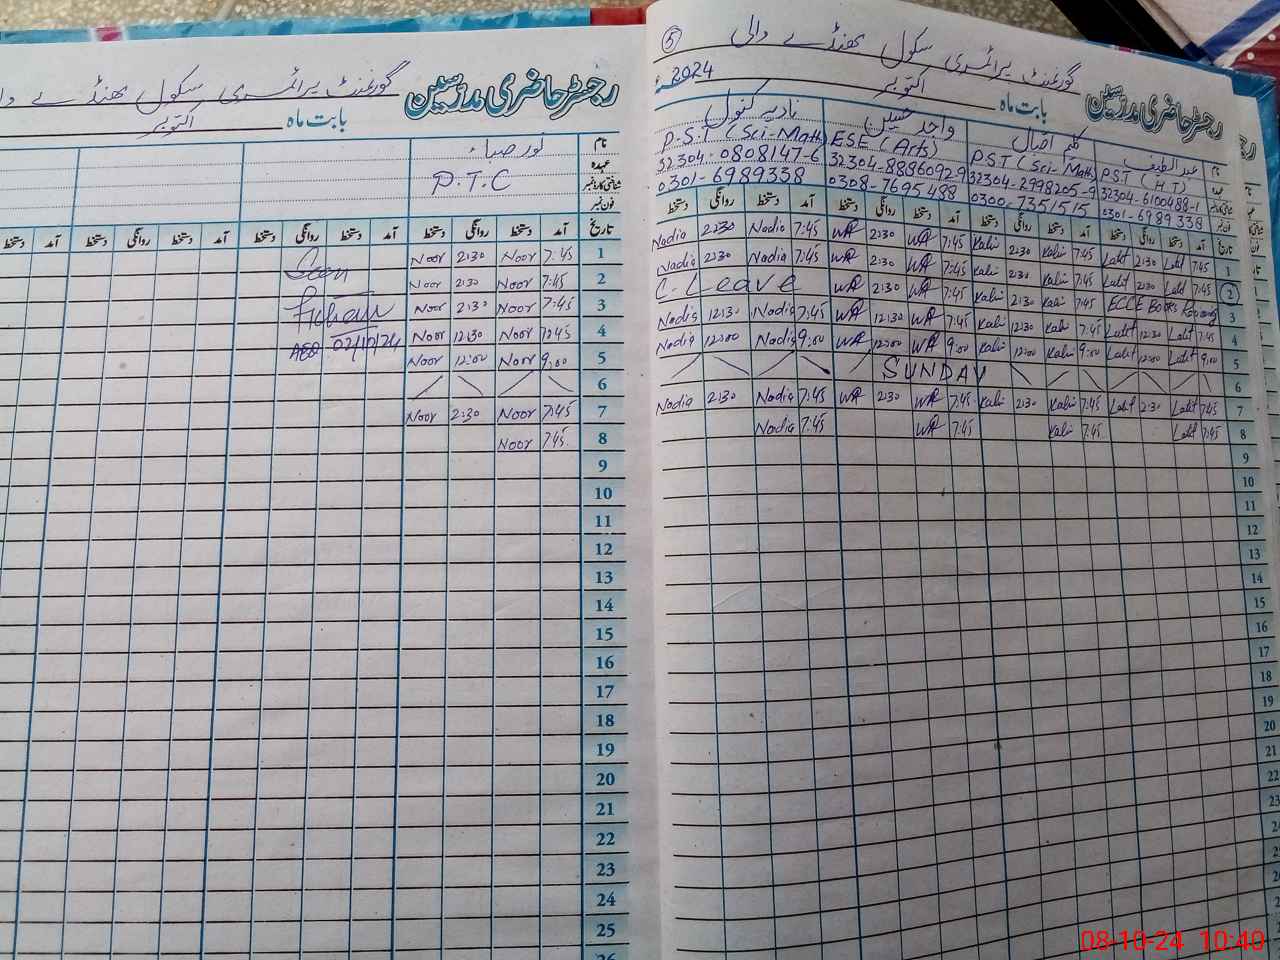 رجسٹر حاضری مدرسین گورنمنٹ پرائمری سکول
بابت ماہ اکتوبر
نام نور صباء
عہدہ P.T.C
شناختی کارڈ نمبر
فون نمبر
تاریخ آمد دستخط روانگی دستخط آمد دستخط روانگی دستخط آمد دستخط روانگی دستخط آمد دستخط
1 7:45 Noor 2:30 Noor
2 7:45 Noor 2:30 Noor Seen
3 7:45 Noor 2:30 Noor
4 7:45 Noor 12:30 Noor AEO 02/10/24
5 9:00 Noor 12:00 Noor
6
7 7:45 Noor 2:30 Noor
8 7:45 Noor
9
10
11
12
13
14
15
16
17
18
19
20
21
22
23
24
25
26
5
رجسٹر حاضری مدرسین گورنمنٹ پرائمری سکول
بابت ماہ اکتوبر 2024
نام عبداللطیف کلیم اقبال واجد حسین نادیہ کنول
P.S.T (Sci-Math) ESE (Arts) PST (Sci-Math) PST (H.T)
32304-0808147-6 32304-8886092-9 32304-2998205-9 32304-6100488-1
0301-6989338 0308-7695488 0300-7351515 0301-6989338
تاریخ آمد دستخط روانگی دستخط آمد دستخط روانگی دستخط آمد دستخط روانگی دستخط آمد دستخط روانگی دستخط
Nadia 2:30 Nadia 7:45 WA 2:30 WA 7:45 Kalim 2:30 Kalim 7:45 Latif 2:30 Latif 7:45 1
Nadia 2:30 Nadia 7:45 WA 2:30 WA 7:45 Kalim 2:30 Kalim 7:45 Latif 2:30 Latif 7:45 2
C. Leave WA 2:30 WA 7:45 Kalim 2:30 Kalim 7:45 ECCE Books 3
Nadia 12:30 Nadia 7:45 WA 12:30 WA 7:45 Kalim 12:30 Kalim 7:45 Latif 12:30 Latif 7:45 4
Nadia 12:00 Nadia 9:00 WA 12:00 WA 9:00 Kalim 12:00 Kalim 9:00 Latif 12:00 Latif 9:00 5
SUNDAY 6
Nadia 2:30 Nadia 7:45 WA 2:30 WA 7:45 Kalim 2:30 Kalim 7:45 Latif 2:30 Latif 7:45 7
Nadia 7:45 WA 7:45 Kalim 7:45 Latif 7:45 8
9
10
11
12
13
14
15
16
17
18
19
20
21
22
23
08-10-24 10:40